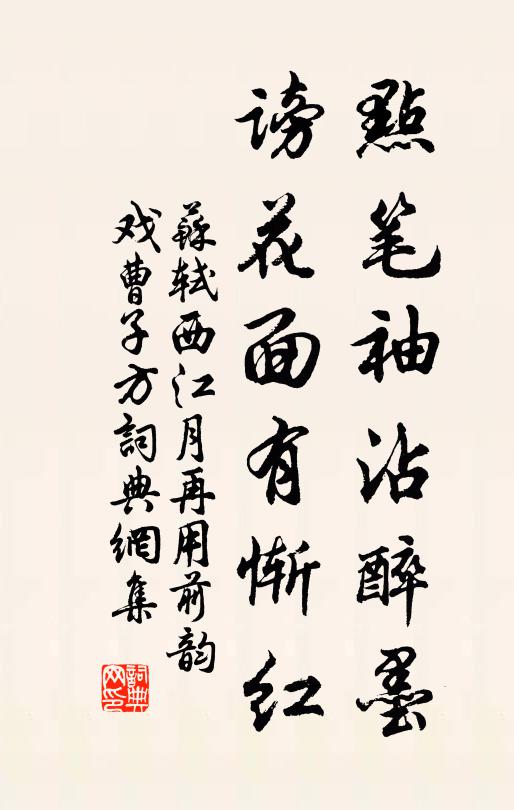 點笔袖沾醉墨
谤花面有惭红
蘇轼西江月再用前韵
戏曹子方詞典網集
詞典网印